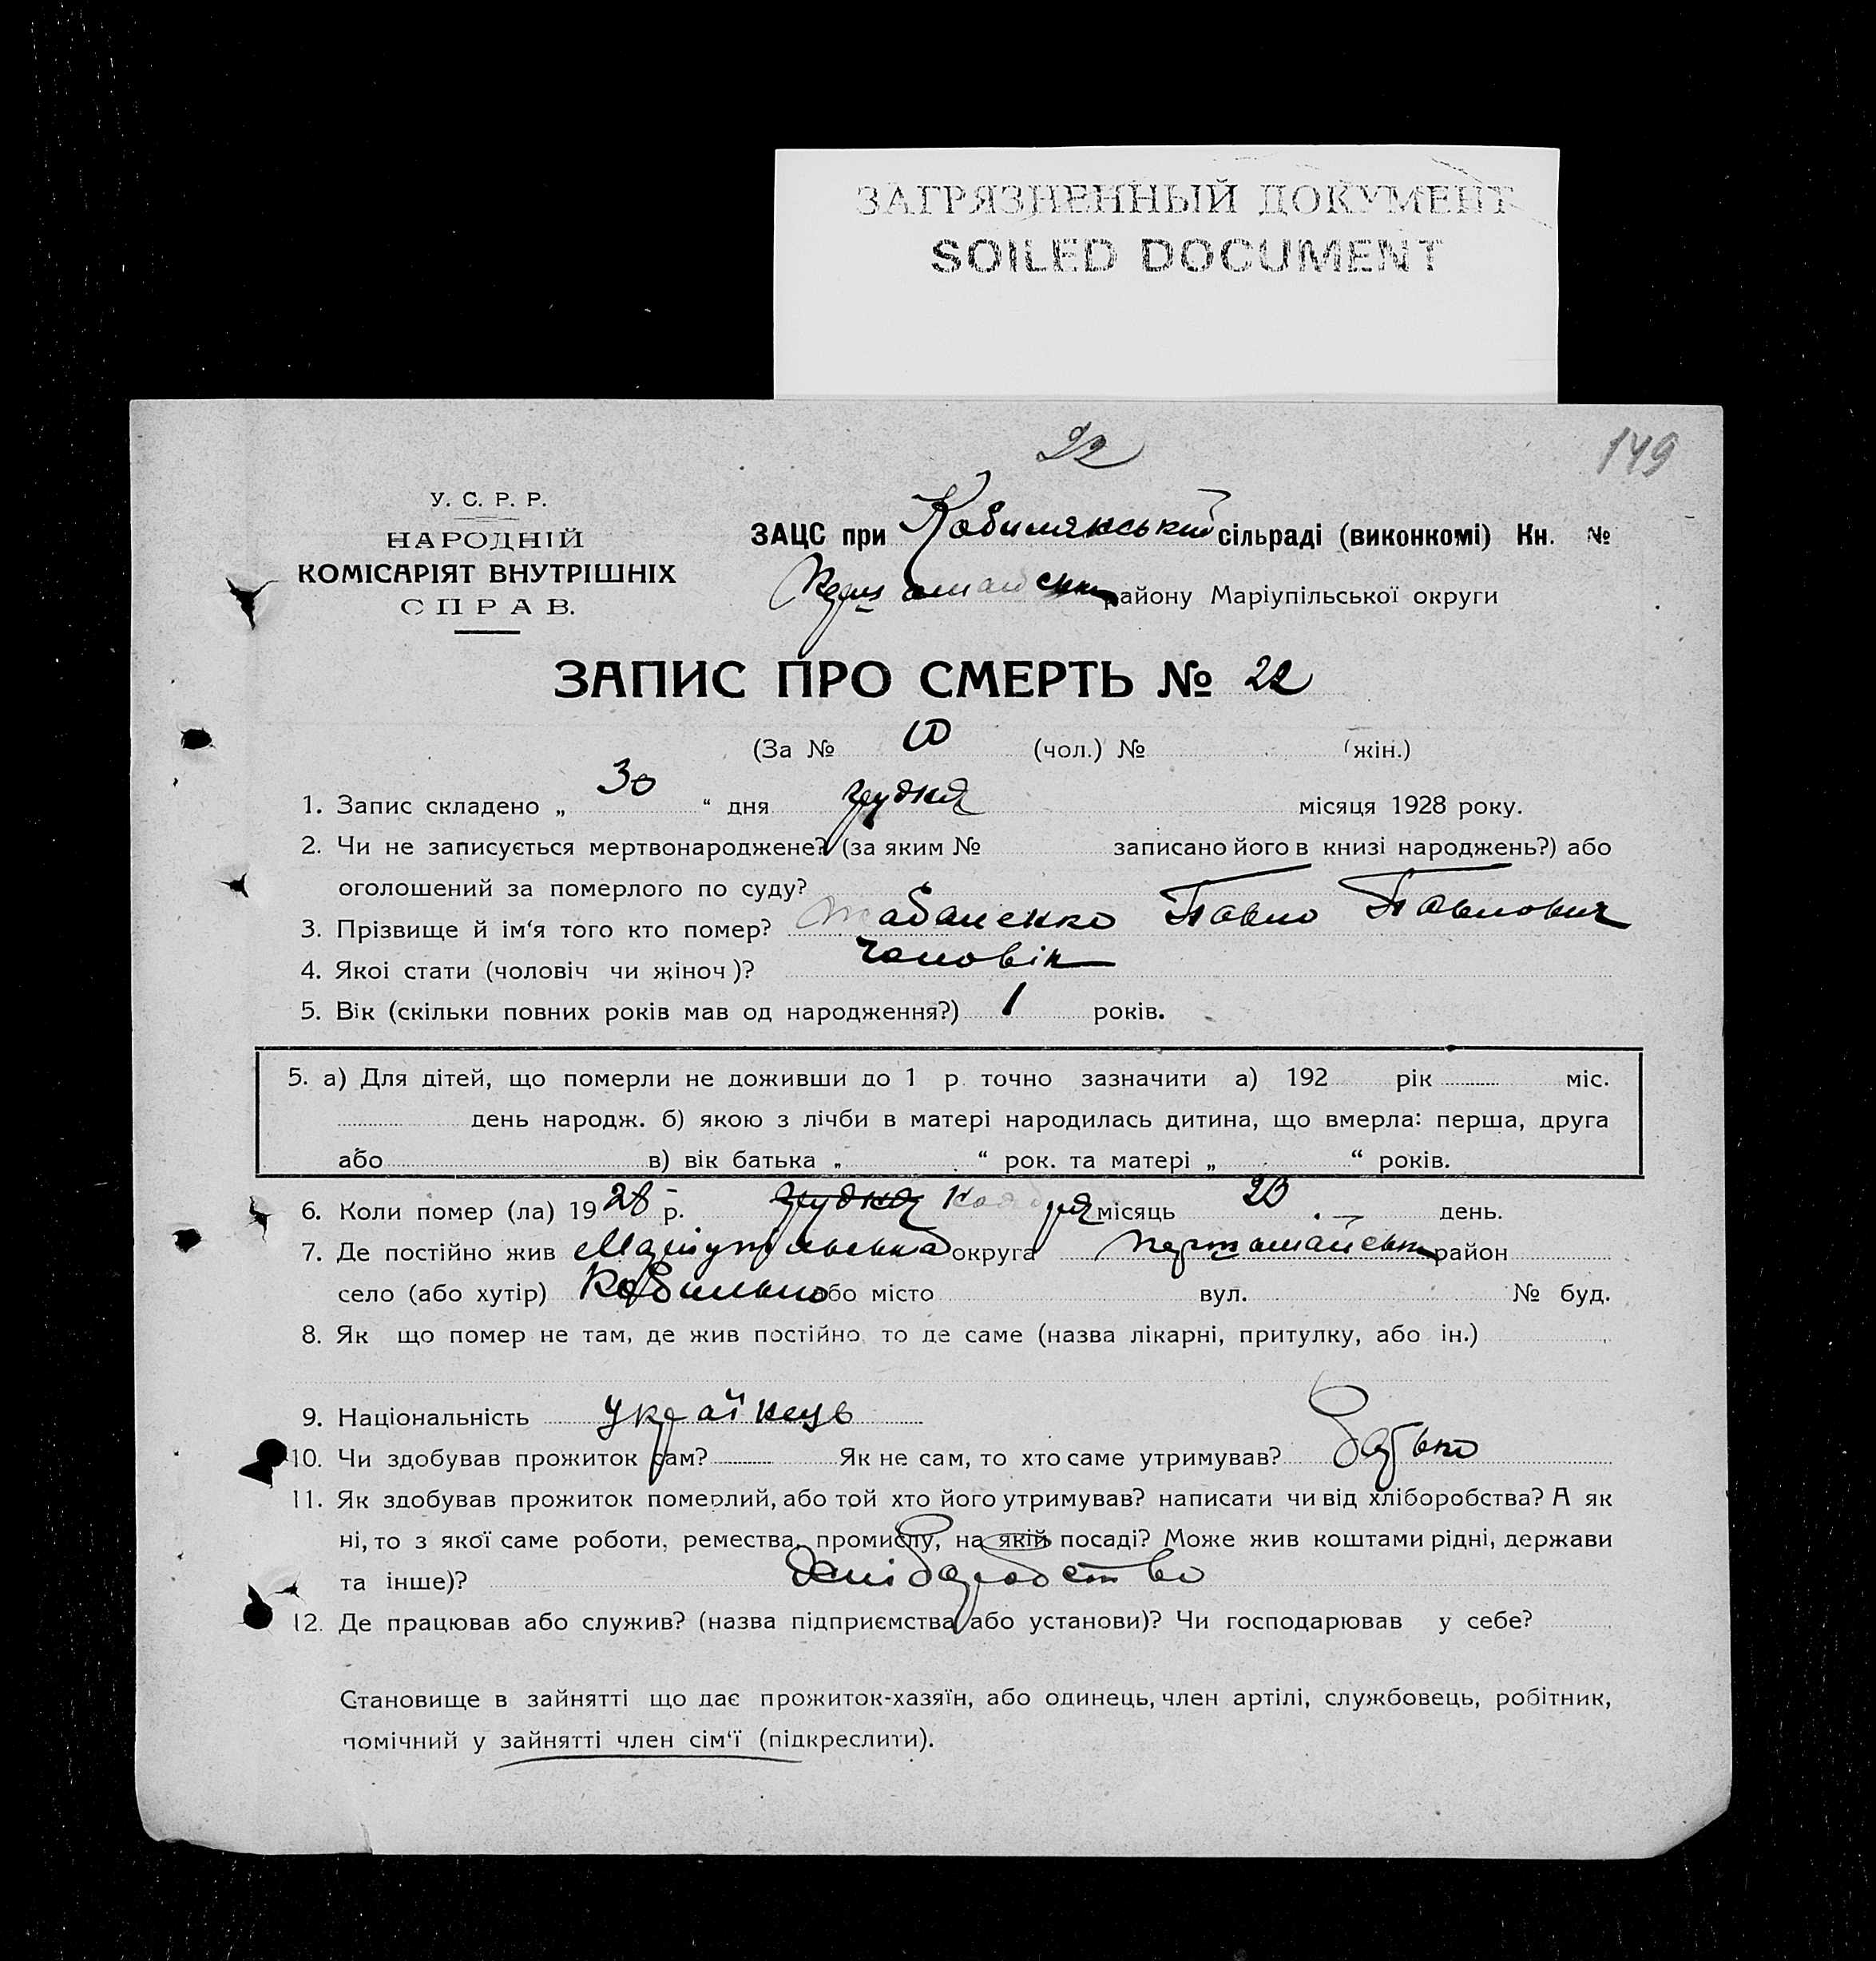 ЗАГРЯЗНЕННЫЙ ДОКУМЕНТ
SOILED DOCUMENT
22
149
У. С. Р. Р.
НАРОДНІЙ
КОМІСАРІЯТ ВНУТРІШНІХ
СПРАВ.
ЗАЦС при Кобилякський сільраді (виконкомі) Кн. №
району Маріупільської округи
ЗАПИС ПРО СМЕРТЬ № 22
(За № (чол.) № (жін.)
1. Запис складено „ 30 “ дня грудня місяця 1928 року.
2. Чи не записується мертвонароджене? (за яким № записано його в книзі народжень?) або
оголошений за померлого по суду?
3. Прізвище й ім‘я того кто помер? Павло Павлович
4. Якоі стати (чоловіч чи жіноч)? Чоловік
5. Вік (скільки повних років мав од народження?) 1 років.
5. а) Для дітей, що померли не доживши до 1 р точно зазначити а) 192 рік міс.
день народж. б) якою з лічби в матері народилась дитина, що вмерла: перша, друга
або в) вік батька „ “ рок. та матері „ “ років.
6. Коли помер (ла) 1928 р. грудня місяць день.
7. Де постійно жив Маріупільська округа Першотравнев район
село (або хутір) або місто вул. № буд.
8. Як що помер не там, де жив постійно то де саме (назва лікарні, притулку, або ін.)
9. Національність Українець
10. Чи здобував прожиток сам? Як не сам, то хто саме утримував? Батько
11. Як здобував прожиток померлий, або той хто його утримував? написати чи від хліборобства? А як
ні, то з якої саме роботи, ремества, промислу, на якій посаді? Може жив коштами рідні, держави
та інше)? хліборобство
12. Де працював або служив? (назва підприємства або установи)? Чи господарював у себе?
Становище в зайнятті що дає прожиток-хазяїн, або одинець, член артілі, службовець, робітник,
помічний у зайнятті член сім‘ї (підкреслити).